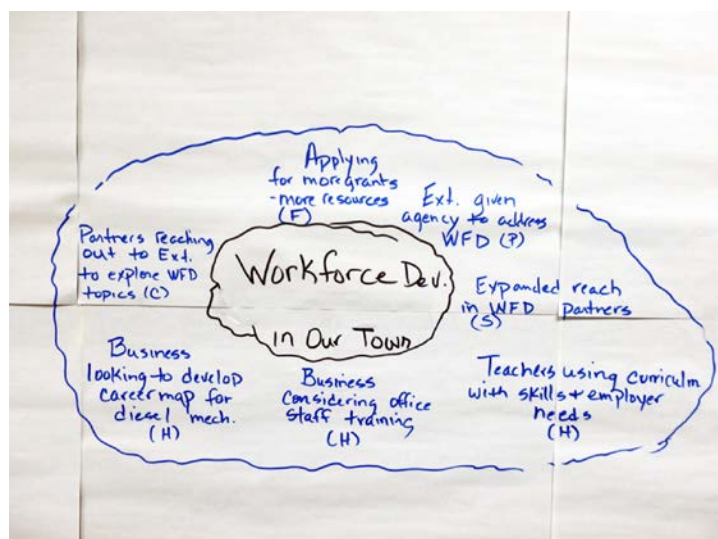 Applying
for more grants
-more resources
(F)
Ext. given
agency to address
WFD (P)
Partners reaching
out to Ext.
to explore WFD
topics (C)
Workforce Dev.
in Our Town
Expanded reach
in WFD partners
(S)
Business
looking to develop
career map for
diesel mech.
(H)
Business
considering office
staff training
(H)
Teachers using curriculm
with skills + employer
needs
(H)